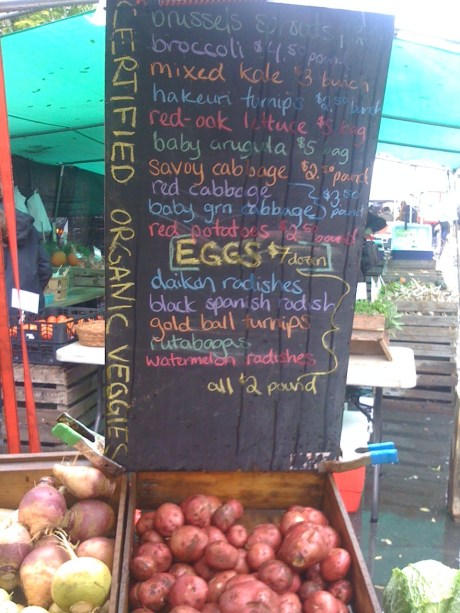 CERTIFIED ORGANIC VEGGIES
brussels sprouts
broccoli $4.50 pound
mixed kale $3 bunch
hakeuri turnips $2.50 bunch
red-oak lettuce $5 bag
baby arugula $5 bag
savoy cabbage $2.50 pound
red cabbage
baby grn cabbage $3.50 pound
red potatoes $2.50 pound
EGGS $7 dozen
daikon radishes
black spanish radish
gold ball turnips
rutabagas
watermelon radishes
all $2 pound